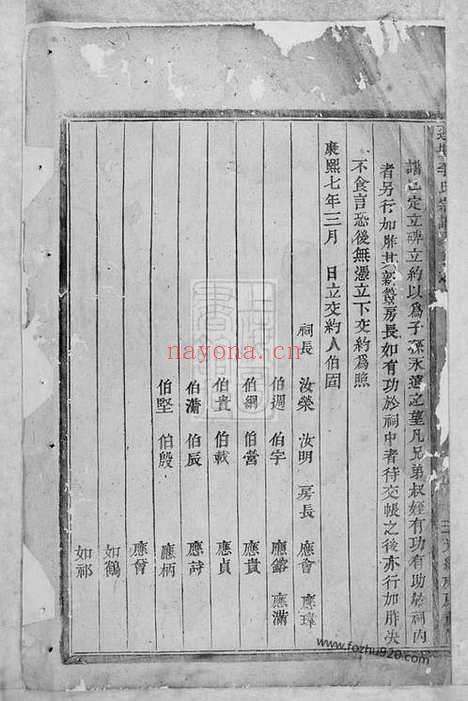 李氏宗譜
譜已定立碑立約以為子孫永遠之望凡兄弟叔姪有功有助於祠內
者另行加胙其新簽房長如有功於祠中者待交帳之後亦行加胙决
不食言恐後無憑立下交約為照
康熙七年三月 日立交約人伯固
祠長 汝榮 汝明 房長 應會 應璋
伯週 伯宇 應鎔 應滿
伯綱 伯當 應貴
伯貴 伯載 應貞
伯肅 伯辰 應詩
伯堅 伯殷 應柄
應脅
如鶴
如祁
nayona.cn
www.fozhu920.com